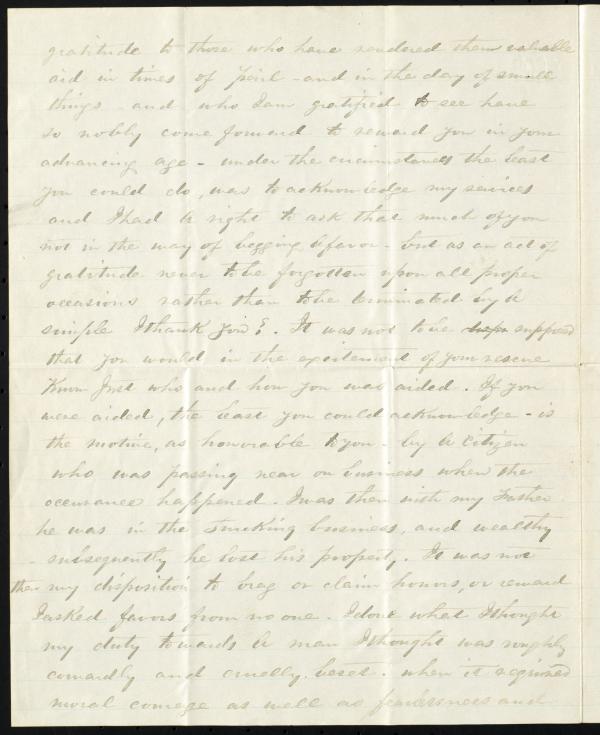 gratitude to those who have rendered them valuable
aid in times of peril - and in the day of small
things - and who I am gratified to see have
so nobly come forward to reward you in your
advancing age - under the circumstances the least
you could do, was to acknowledge my services
and I had a right to ask that much of you
not in the way of begging a favor - but as an act of
gratitude never to be forgotten upon all proper
occasions rather than to be terminated by a
simple I thank you. It was not to be supposed
that you would in the excitement of your rescue
Know Just who and how you was aided. If you
were aided, the least you could acknowledge - is
the motive, as honorable to you - by a citizen
who was passing near on business when the
occurance happened. I was then with my Father
he was in the business, and wealthy
- subsequently he lost his property. It was not
then my disposition to brag or claim honors, or reward
I asked favors from no one. I done what I thought
my duty towards a man I thought was roughly
cowardly and cruelly beset. when it required
moral courage as well as fearlessness and